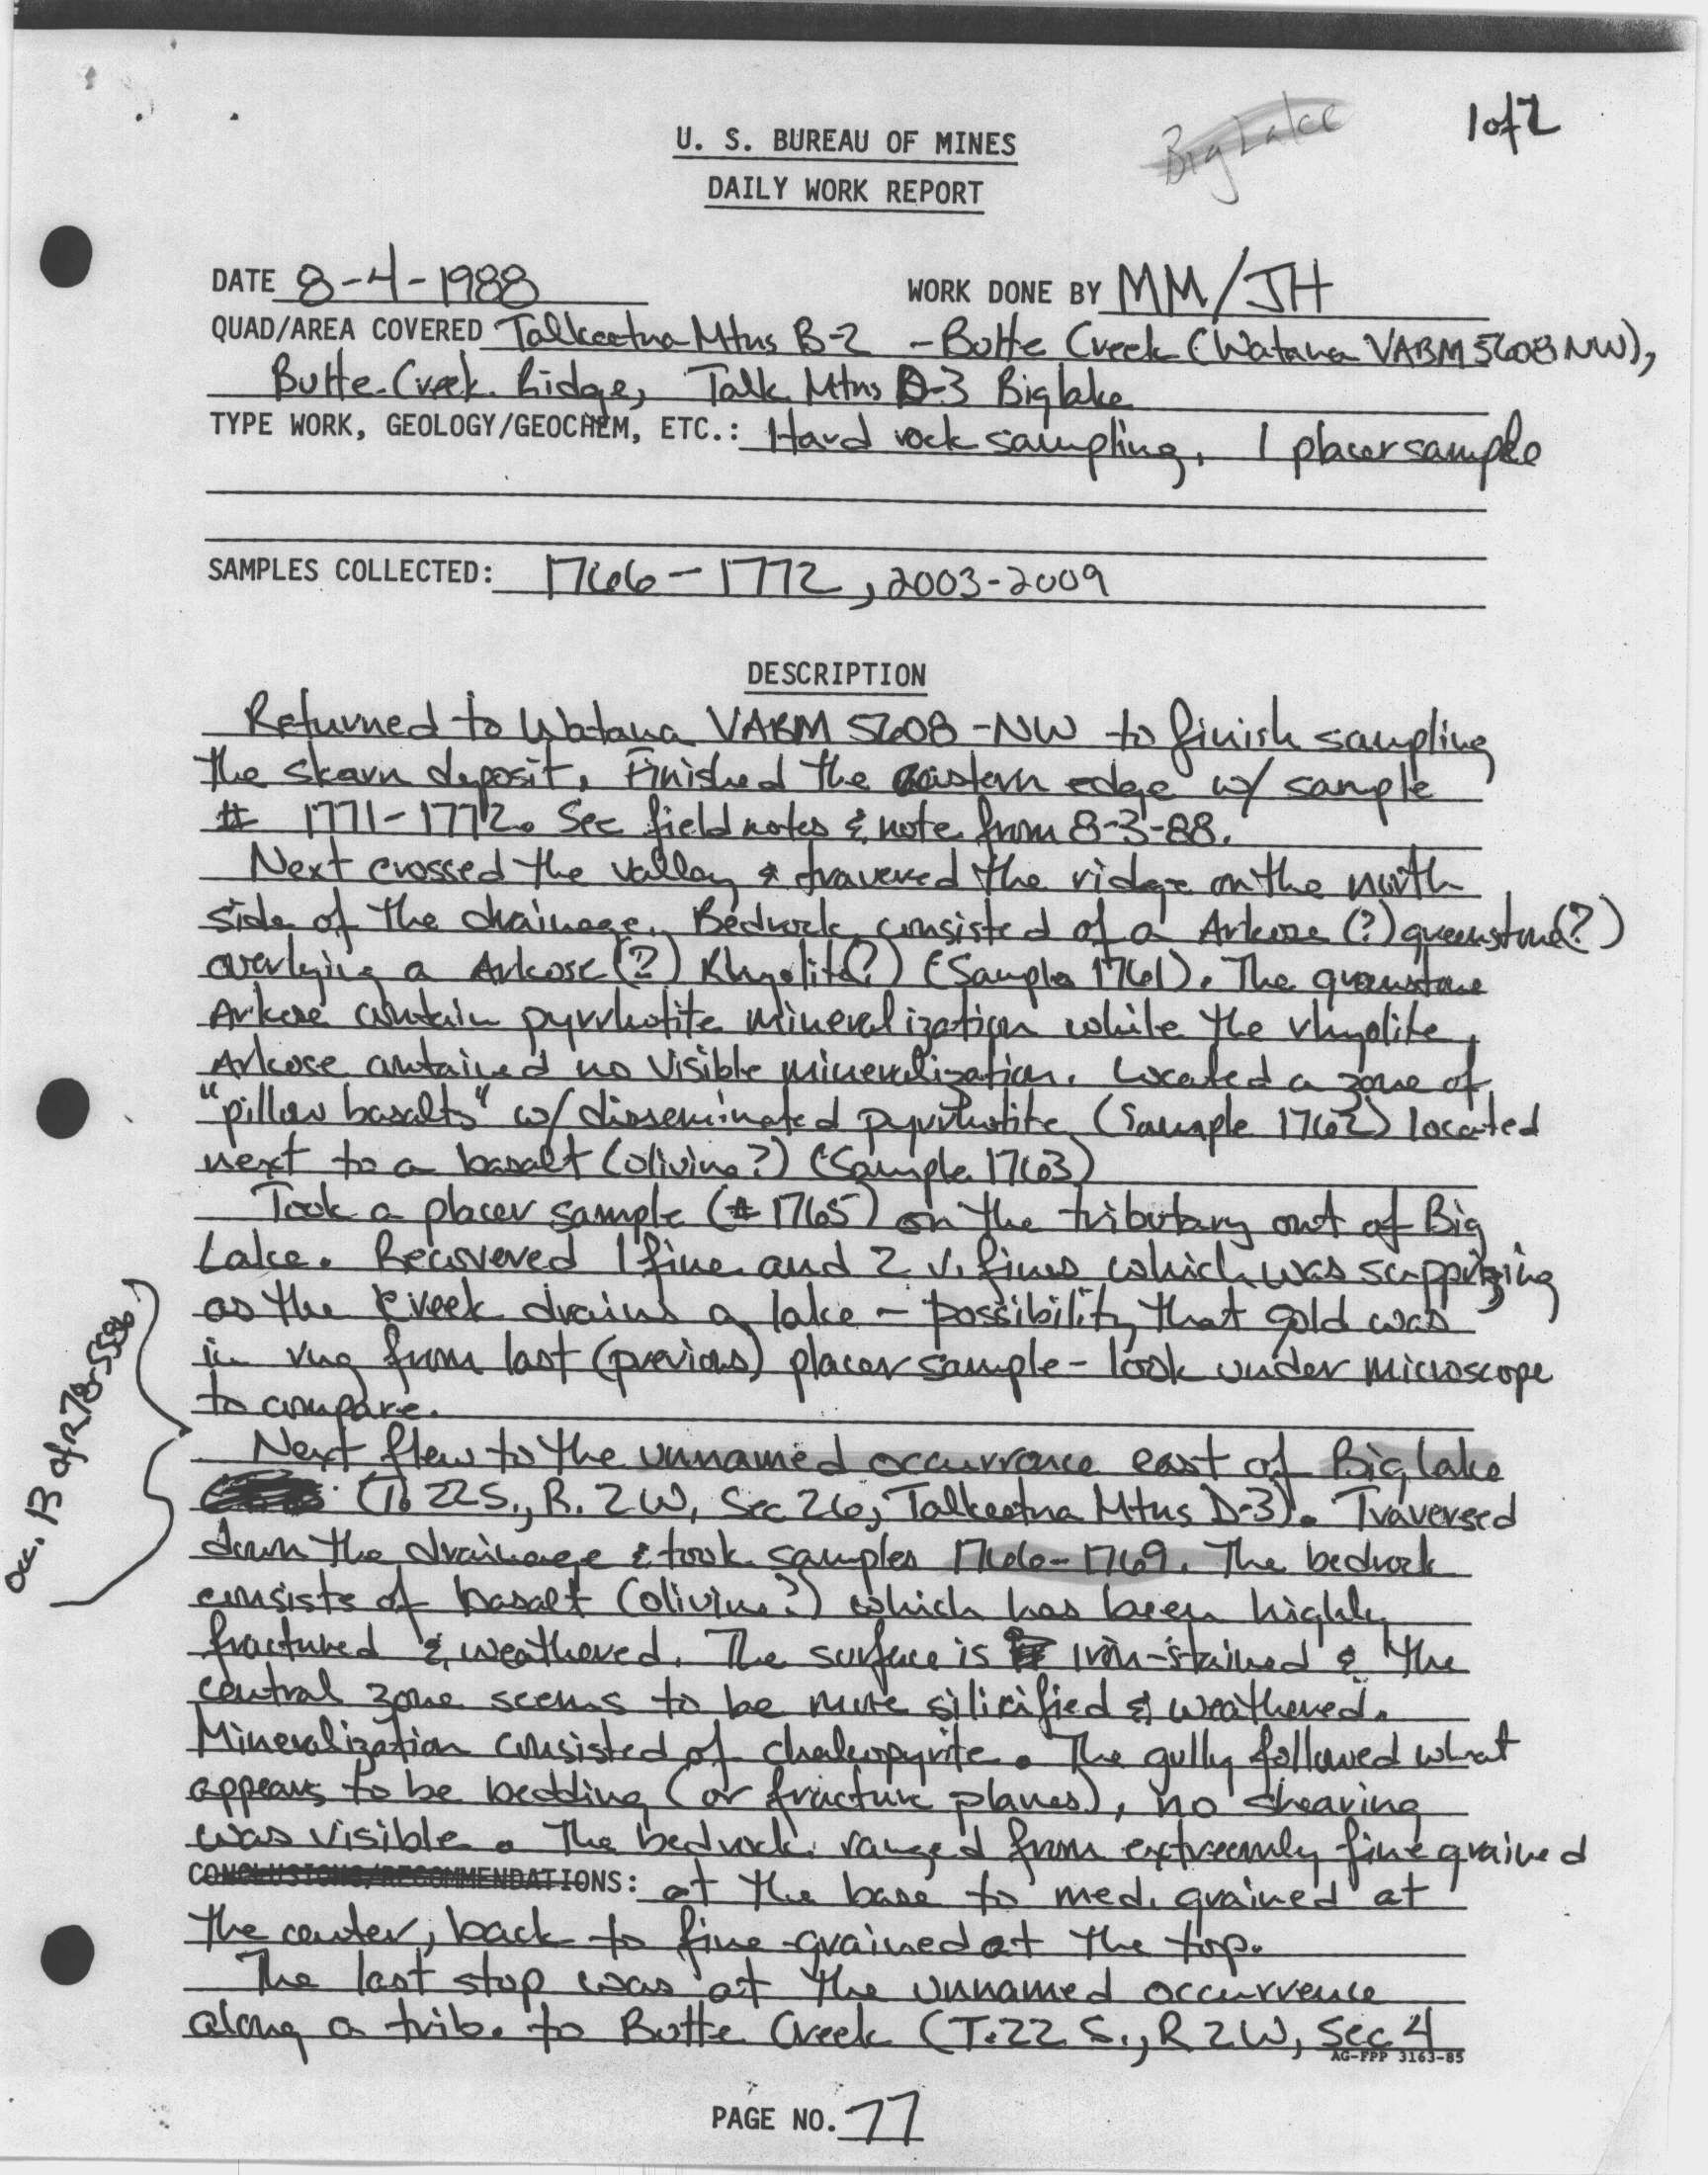 Big Lake
1 of 2
U. S. BUREAU OF MINES
DAILY WORK REPORT
DATE 8-4-1988 WORK DONE BY MM/JH
QUAD/AREA COVERED Talkeetna Mtns B-2 - Butte Creek (Watana VABM 5608 NW),
Butte Creek Ridge, Talk Mtns D-3 Big lake
TYPE WORK, GEOLOGY/GEOCHEM, ETC.: Hard rock sampling, 1 placer sample
SAMPLES COLLECTED: 1766-1772, 2003-2009
DESCRIPTION
Returned to Watana VABM 5608-NW to finish sampling
the skarn deposit. Finished the eastern edge w/ sample
# 1771-1772. See field notes & note from 8-3-88.
Next crossed the valley & traversed the ridge on the north
side of the drainage. Bedrock consisted of a Arkose (?) greenstone(?)
overlying a Arkose (?) Rhyolite(?) (Sample 1761). The greenstone
Arkose contain pyrrhotite mineralization while the rhyolite,
Arkose contained no visible mineralization. Located a zone of
"pillow basalts" w/ disseminated pyrrhotite (Sample 1762) located
next to a basalt (olivine?) (Sample 1763)
Took a placer sample (# 1765) on the tributary out of Big
Lake. Recovered 1 fine and 2 v. fines which was supprizing
as the creek drains a lake - possibility that gold was
in rug from last (previous) placer sample - look under microscope
to compare.
Next flew to the unnamed occurrence east of Big lake
(T. 22 S., R. 2 W, Sec 26, Talkeetna Mtns D-3). Traversed
down the drainage & took samples 1766-1769. The bedrock
consists of basalt (olivine?) which has been highly
fractured & weathered. The surface is iron-stained & the
central zone seems to be more silicified & weathered.
Mineralization consisted of chalcopyrite. The gully followed what
appears to be bedding (or fracture planes), no shearing
was visible. The bedrock ranged from extreemly fine grained
CONCLUSIONS/RECOMMENDATIONS: at the base to med. grained at
the center, back to fine-grained at the top.
The last stop was at the unnamed occurrence
along a trib. to Butte Creek (T. 22 S., R 2 W, Sec 4
AG-FPP 3163-85
PAGE NO. 77
Occ. 13 of R78-558b